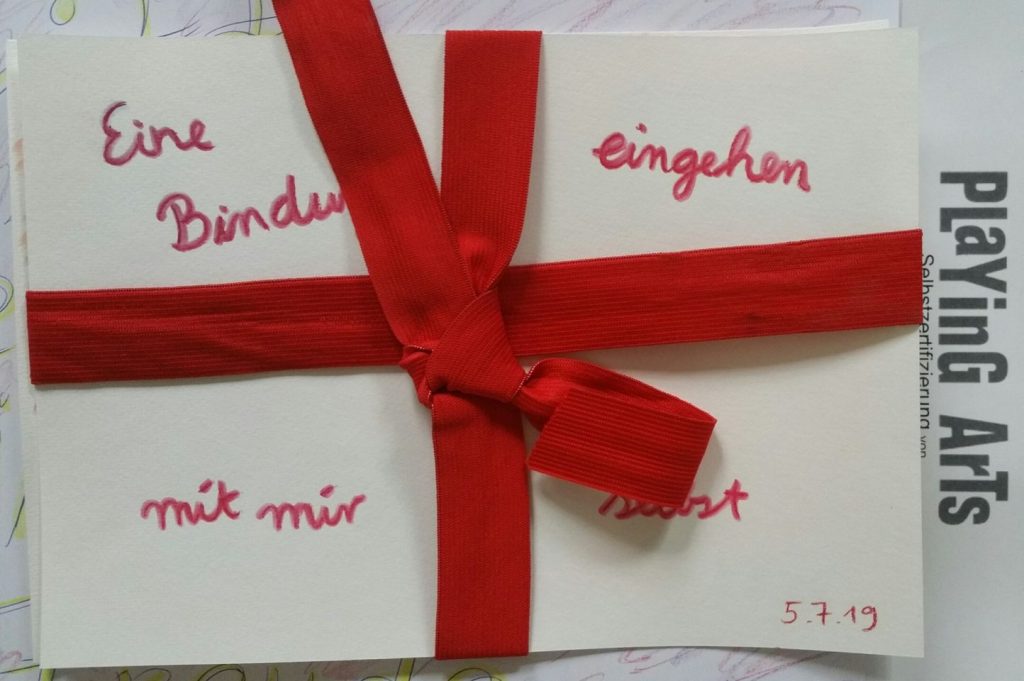 Eine
Bindu
eingehen
mit mir
selbst
5.7.19
PLaYinG ArTs
Selbstzertifizierung von